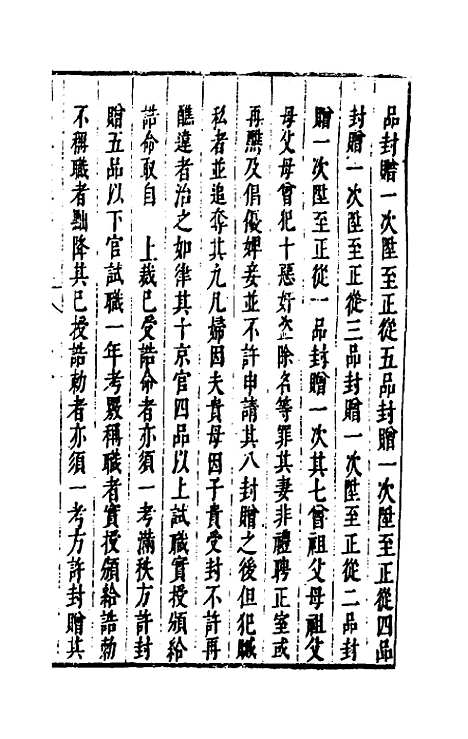 品封贈一次陞至正從五品封贈一次陞至正從四品
封贈一次陞至正從三品封贈一次陞至正從二品封
贈一次陞至正從一品封贈一次其七曾祖父母祖父
母父母曾犯十惡奸盗除名等罪其妻非禮聘正室或
再醮及倡優婢妾並不許申請其八封贈之後但犯贓
私者並追奪其九凡婦因夫貴母因子貴受封不許再
醮違者治之如律其十京官四品以上試職實授頒給
誥命取自　上裁已受誥命者亦須一考滿秩方許封
贈五品以下官試職一年考覈稱職者實授頒給誥勅
不稱職者黜降其已授誥勅者亦須一考方許封贈其